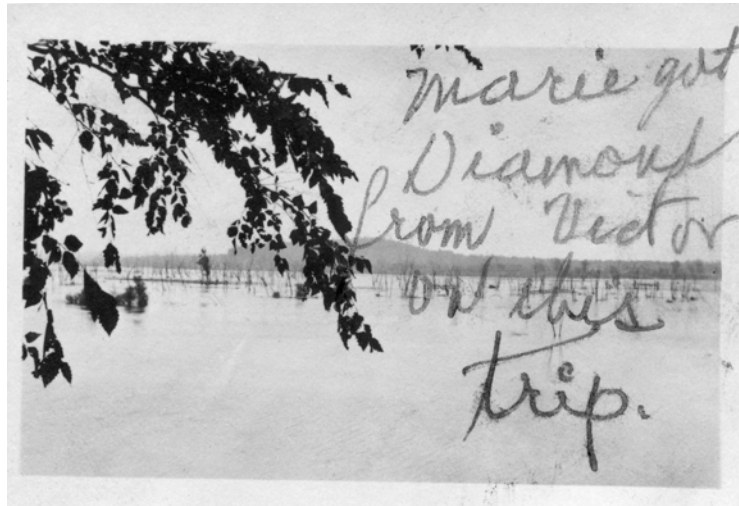 Marie got
Diamond
from Victor
on this
trip.